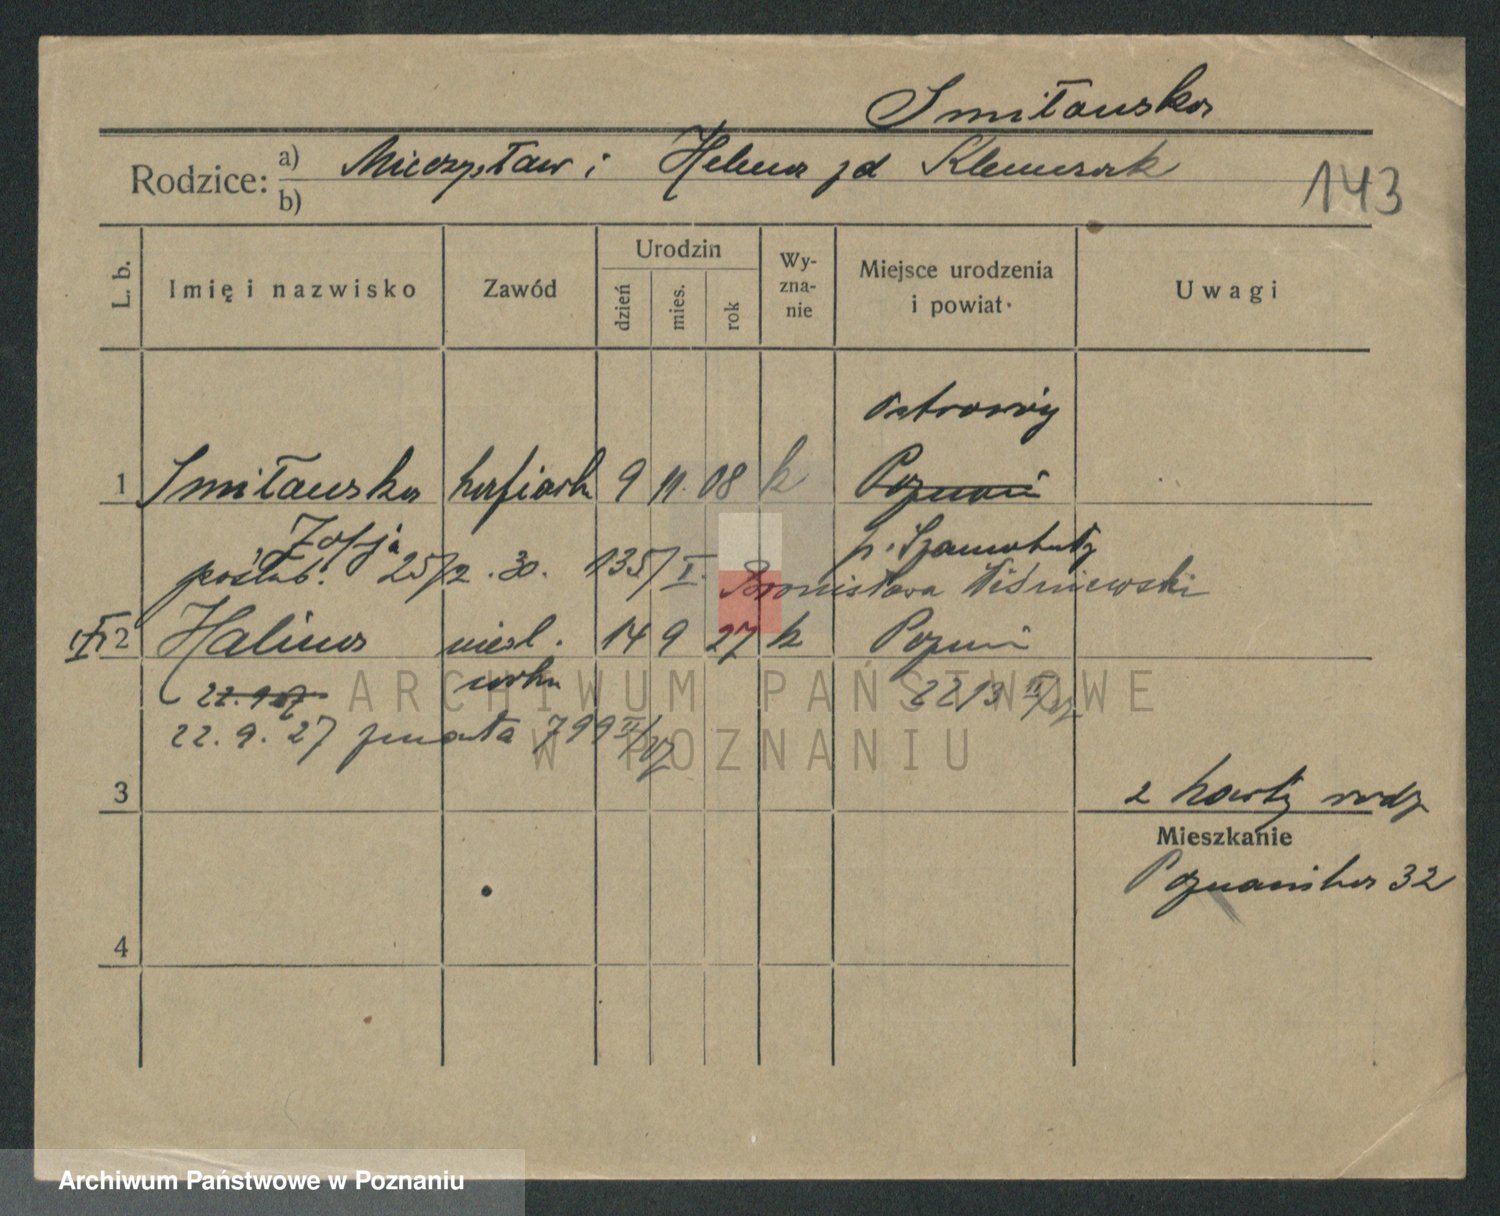 Smiłowska
Rodzice: a) Mieczysław i Helena zd Klemczak
b)
143
L. b. Imię i nazwisko Zawód Urodzin dzień mies. rok Wyznanie Miejsce urodzenia i powiat Uwagi
Ostroróg
1 Smiłowska hafciarka 9 11. 08 k Poznań
Zofja p. Szamotuły
poślub. 25/2. 30. 135/I. Bronisława Wiśniewski
2 Halina nieśl. 14 9 27 k Poznań
córka
22.9.27 2213
22. 9. 27 zmarła 799
3 2 karty rodz
Mieszkanie
Poznańska 32
4
ARCHIWUM PAŃSTWOWE
W POZNANIU
Archiwum Państwowe w Poznaniu